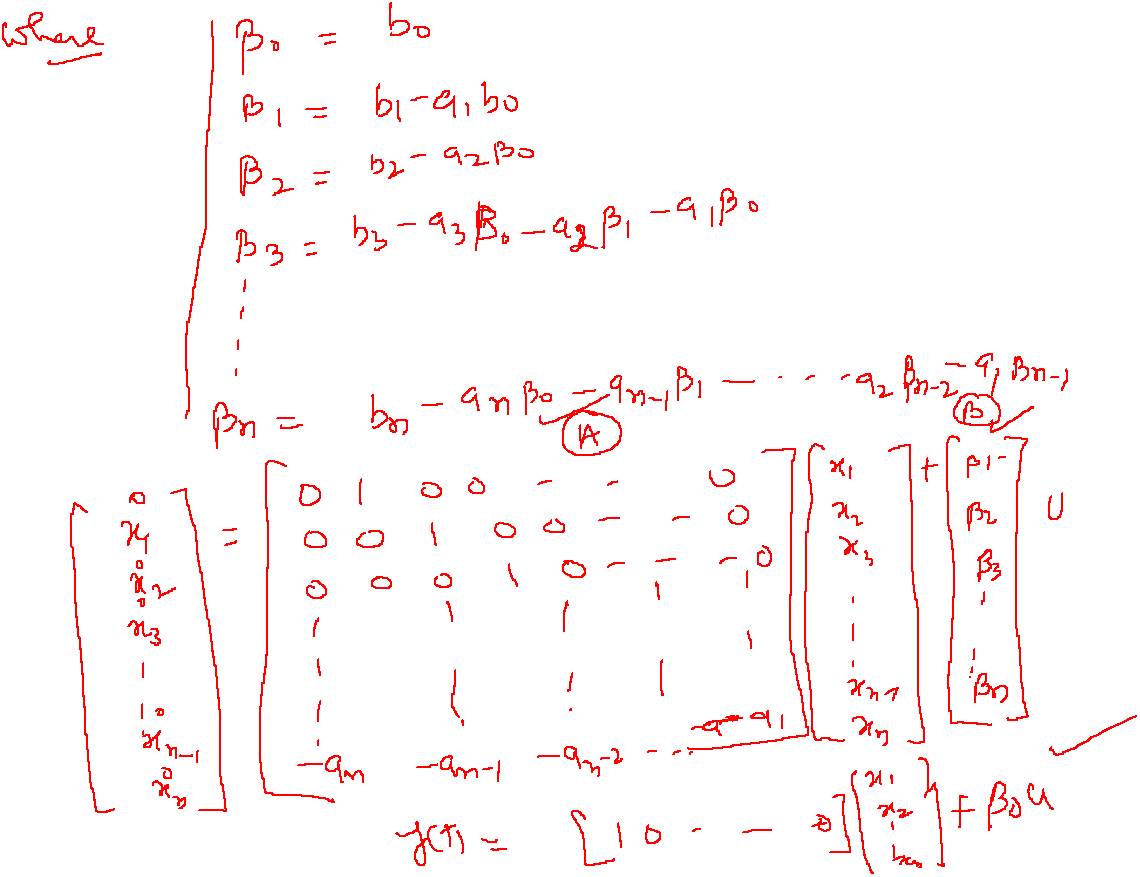 where
β0 = b0
β1 = b1 - a1 b0
β2 = b2 - a2 β0
β3 = b3 - a3 β0 - a2 β1 - a1 β0
βn = bn - an β0 - an-1 β1 - - - - a2 βn-2 - a1 βn-1
A B
[ẋ1 ẋ2 ẋ3 ¦ ẋn-1 ẋn] = [0 1 0 0 - - 0
0 0 1 0 0 - - 0
0 0 0 1 0 - - - 0
-an -an-1 -an-2 --- -a1] [x1 x2 x3 ¦ xn-1 xn] + [β1 β2 β3 ¦ βn] U
y(t) = [1 0 - - 0] [x1 x2 ¦ xn] + β0 u